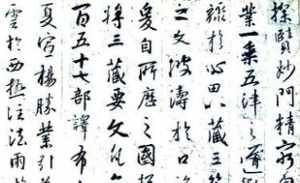 探賾妙門精窮奧
業一乘五律之道馳
驟於心田八藏三篋
之文波濤於口海
爰自所歷之國總
將三藏要文凡六
百五十七部譯布中
夏宣揚勝業引慈
雲於西極注法雨